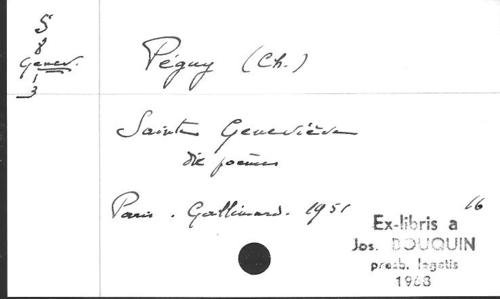 S
8
Genev.
1
3
Péguy (Ch.)
Sainte Geneviève
dix poèmes
Paris. Gallimard. 1951
16
Ex-libris a
Jos. BOUQUIN
presb. legatis
1968